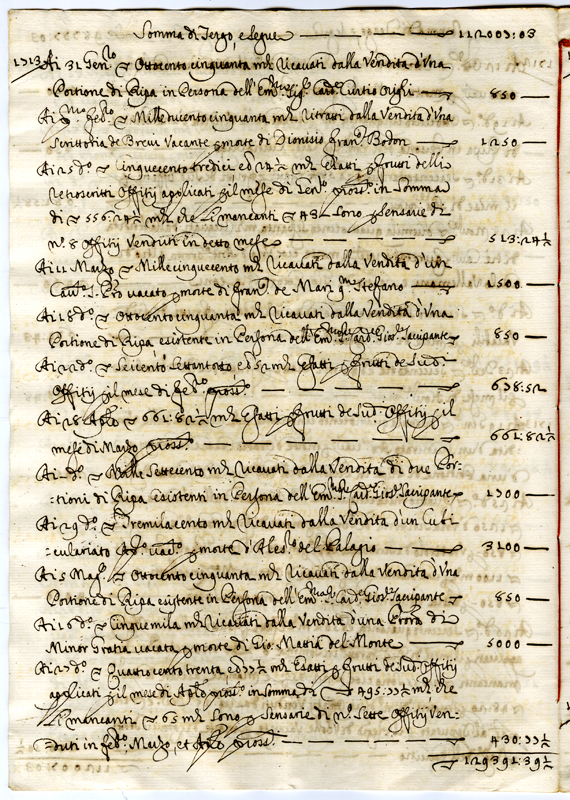 Somma di Tergo, e Segue — — — 112003:03
1713 Ai 31 Gen.ro Ottocento cinquanta mta Ricavati dalla Vendita d'Una
Portione di Ripa in Persona dell'Em.mo Sig.r Card. Curtio Orighi — 850 —
Ai feb.ro Milleducento cinquanta mta ritratti dalla Vendita d'Una
Scrittoria de Brevi Vacante p morte di Dionisio Fran.co Bodon — 1250 —
Ai 25 d.o Cinquecento tredici ed 24½ mta Esatti p frutti delli
retroscritti Offitij applicati p il mese di Gen.ro pross.o in Somma
di 556:24½ mta che li mancanti 43 Sono p Sensarie di
n.o 8 Offitij Venduti in detto mese — — — 513:24½
Ai 11 Marzo Millecinquecento mta Ricavati dalla Vendita d'un
Cav.to S. P.ro vacato p morte di Fran.co de Mari q.m Stefano — 1500 —
Ai 18 d.o Ottocento cinquanta mta Ricavati dalla Vendita d'Una
Portione di Ripa esistente in Persona dell'Em.mo S. Card. Gios. Sacripante — 850 —
Ai 22 d.o Seicento Settantotto ed 52 mta Esatti p frutti de Sud.i
Offitij p il mese di feb.ro pross.o — — — 638:52
Ai 28 Aple 661:82½ mta Esatti p frutti de Sud.i Offitij p il
mese di Marzo pross.o — — — 661:82½
Ai d.o Mille Settecento mta Ricavati dalla Vendita di due Por:
:tioni di Ripa esistenti in Persona dell'Em.mo S. Card. Gios. Sacripante — 1700 —
Ai 29 d.o Tremila cento mta Ricavati dalla Vendita d'un Cubi
:culariato Ap.co vac.to p morte d'Aless.o del Palagio — 3100 —
Ai 5 Mag.o Ottocento cinquanta mta Ricavati dalla Vendita d'Una
Portione di Ripa esistente in Persona dell'Em.mo S. Card. Gios. Sacripante — 850 —
Ai 16 d.o Cinque mila mta Ricavati dalla Vendita d'una Pror.a di
Minor Gratia vacata p morte di Gio. Mattia del Monte — 5000 —
Ai 27 d.o Quattrocento trenta ed 77½ mta Esatti p frutti de Sud.i Offitij
applicati p il mese di Aple pross.o in Somma di 495:77½ mta che
li mancanti 65 mta Sono p Sensarie di n.o Sette Offitij Ven:
:duti in feb.ro Marzo, et Aple pross.o — — — 430:77½
129391:39½